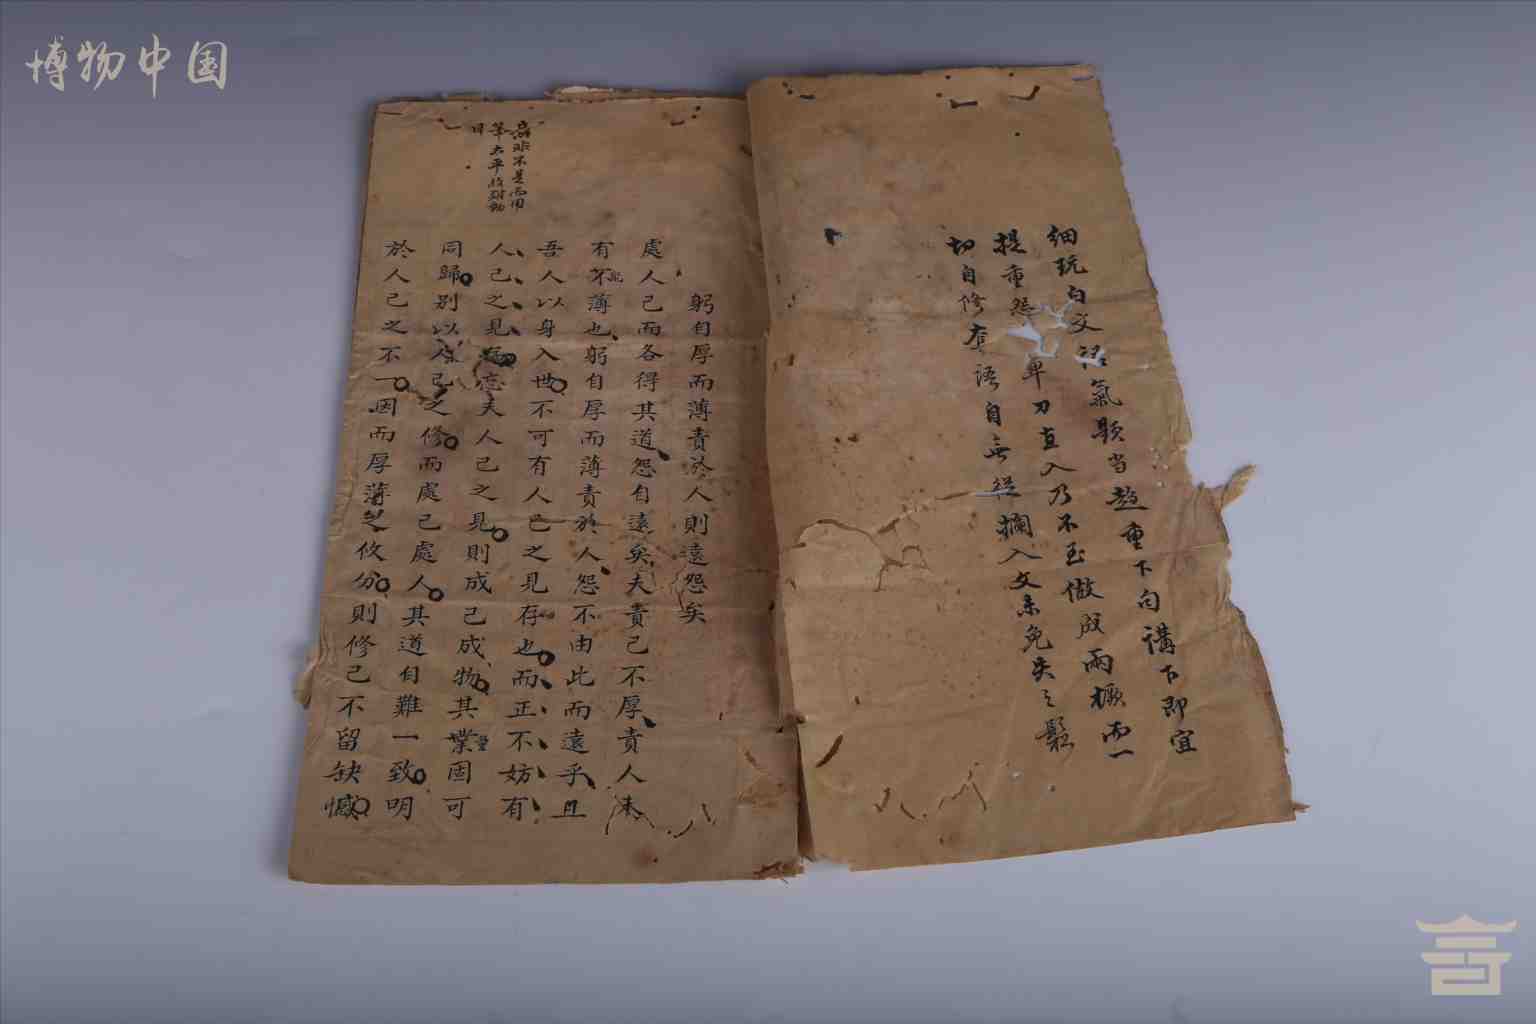 博物中国
細玩白文語氣題當趨重下句講下即宜
提重怨 單刀直入乃不至做成兩橛而一
切自修套語自無從攔入文未免失之鬆
躬自厚而薄責於人則遠怨矣
處人己而各得其道怨自遠矣夫責己不厚責人未
有不薄也躬自厚而薄責於人怨不由此而遠乎且
吾人以身入世不可有人己之見存也而正不妨有
人己之見 忘夫人己之見則成己成物其業固可
同歸別以人己之修而處己處人其道自難一致明
於人己之不一因而厚薄之攸分則修己不留缺憾
筆太平
日